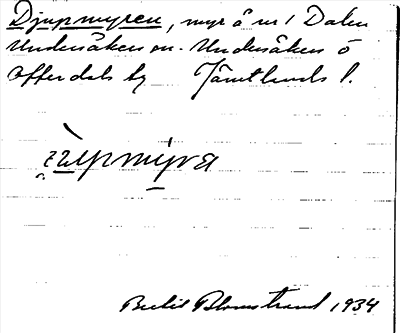 Djupmyren, myr å nr 1 Dalen
Undersåkers sn. Undersåkers o
Offerdals tg Jämtlands l.
Bertil Blomstrand 1934